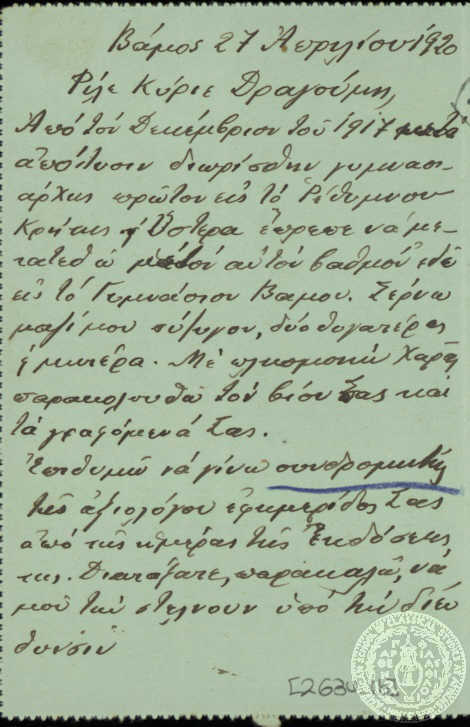 Βάμος 27 Απριλίου 1920
Φίλε Κύριε Δραγούμη,
Από τον Δεκέμβριον του 1917 μετά
αίτησιν διωρίσθην γυμνασι-
άρχης πρώτον εις το Ρέθυμνον
Κρήτης ύστερα έπρεπε να με-
τατεθώ με τον αυτόν βαθμόν εδώ
εις το Γυμνάσιον Βάμου. Σέρνω
μαζί μου σύζυγον, δύο θυγατέρες
μητέρα. Με χαράν
παρακολουθώ τον βίον Σας και
τα γραφόμενά Σας.
Επιθυμώ να γίνω συνδρομητής
της αξιολόγου εφημερίδος Σας
από της ημέρας της Εκδόσεώς
της. Διατάξατε, παρακαλώ, να
μου την στέλνουν υπό την διεύ
θυνσιν
[263υ (β)]